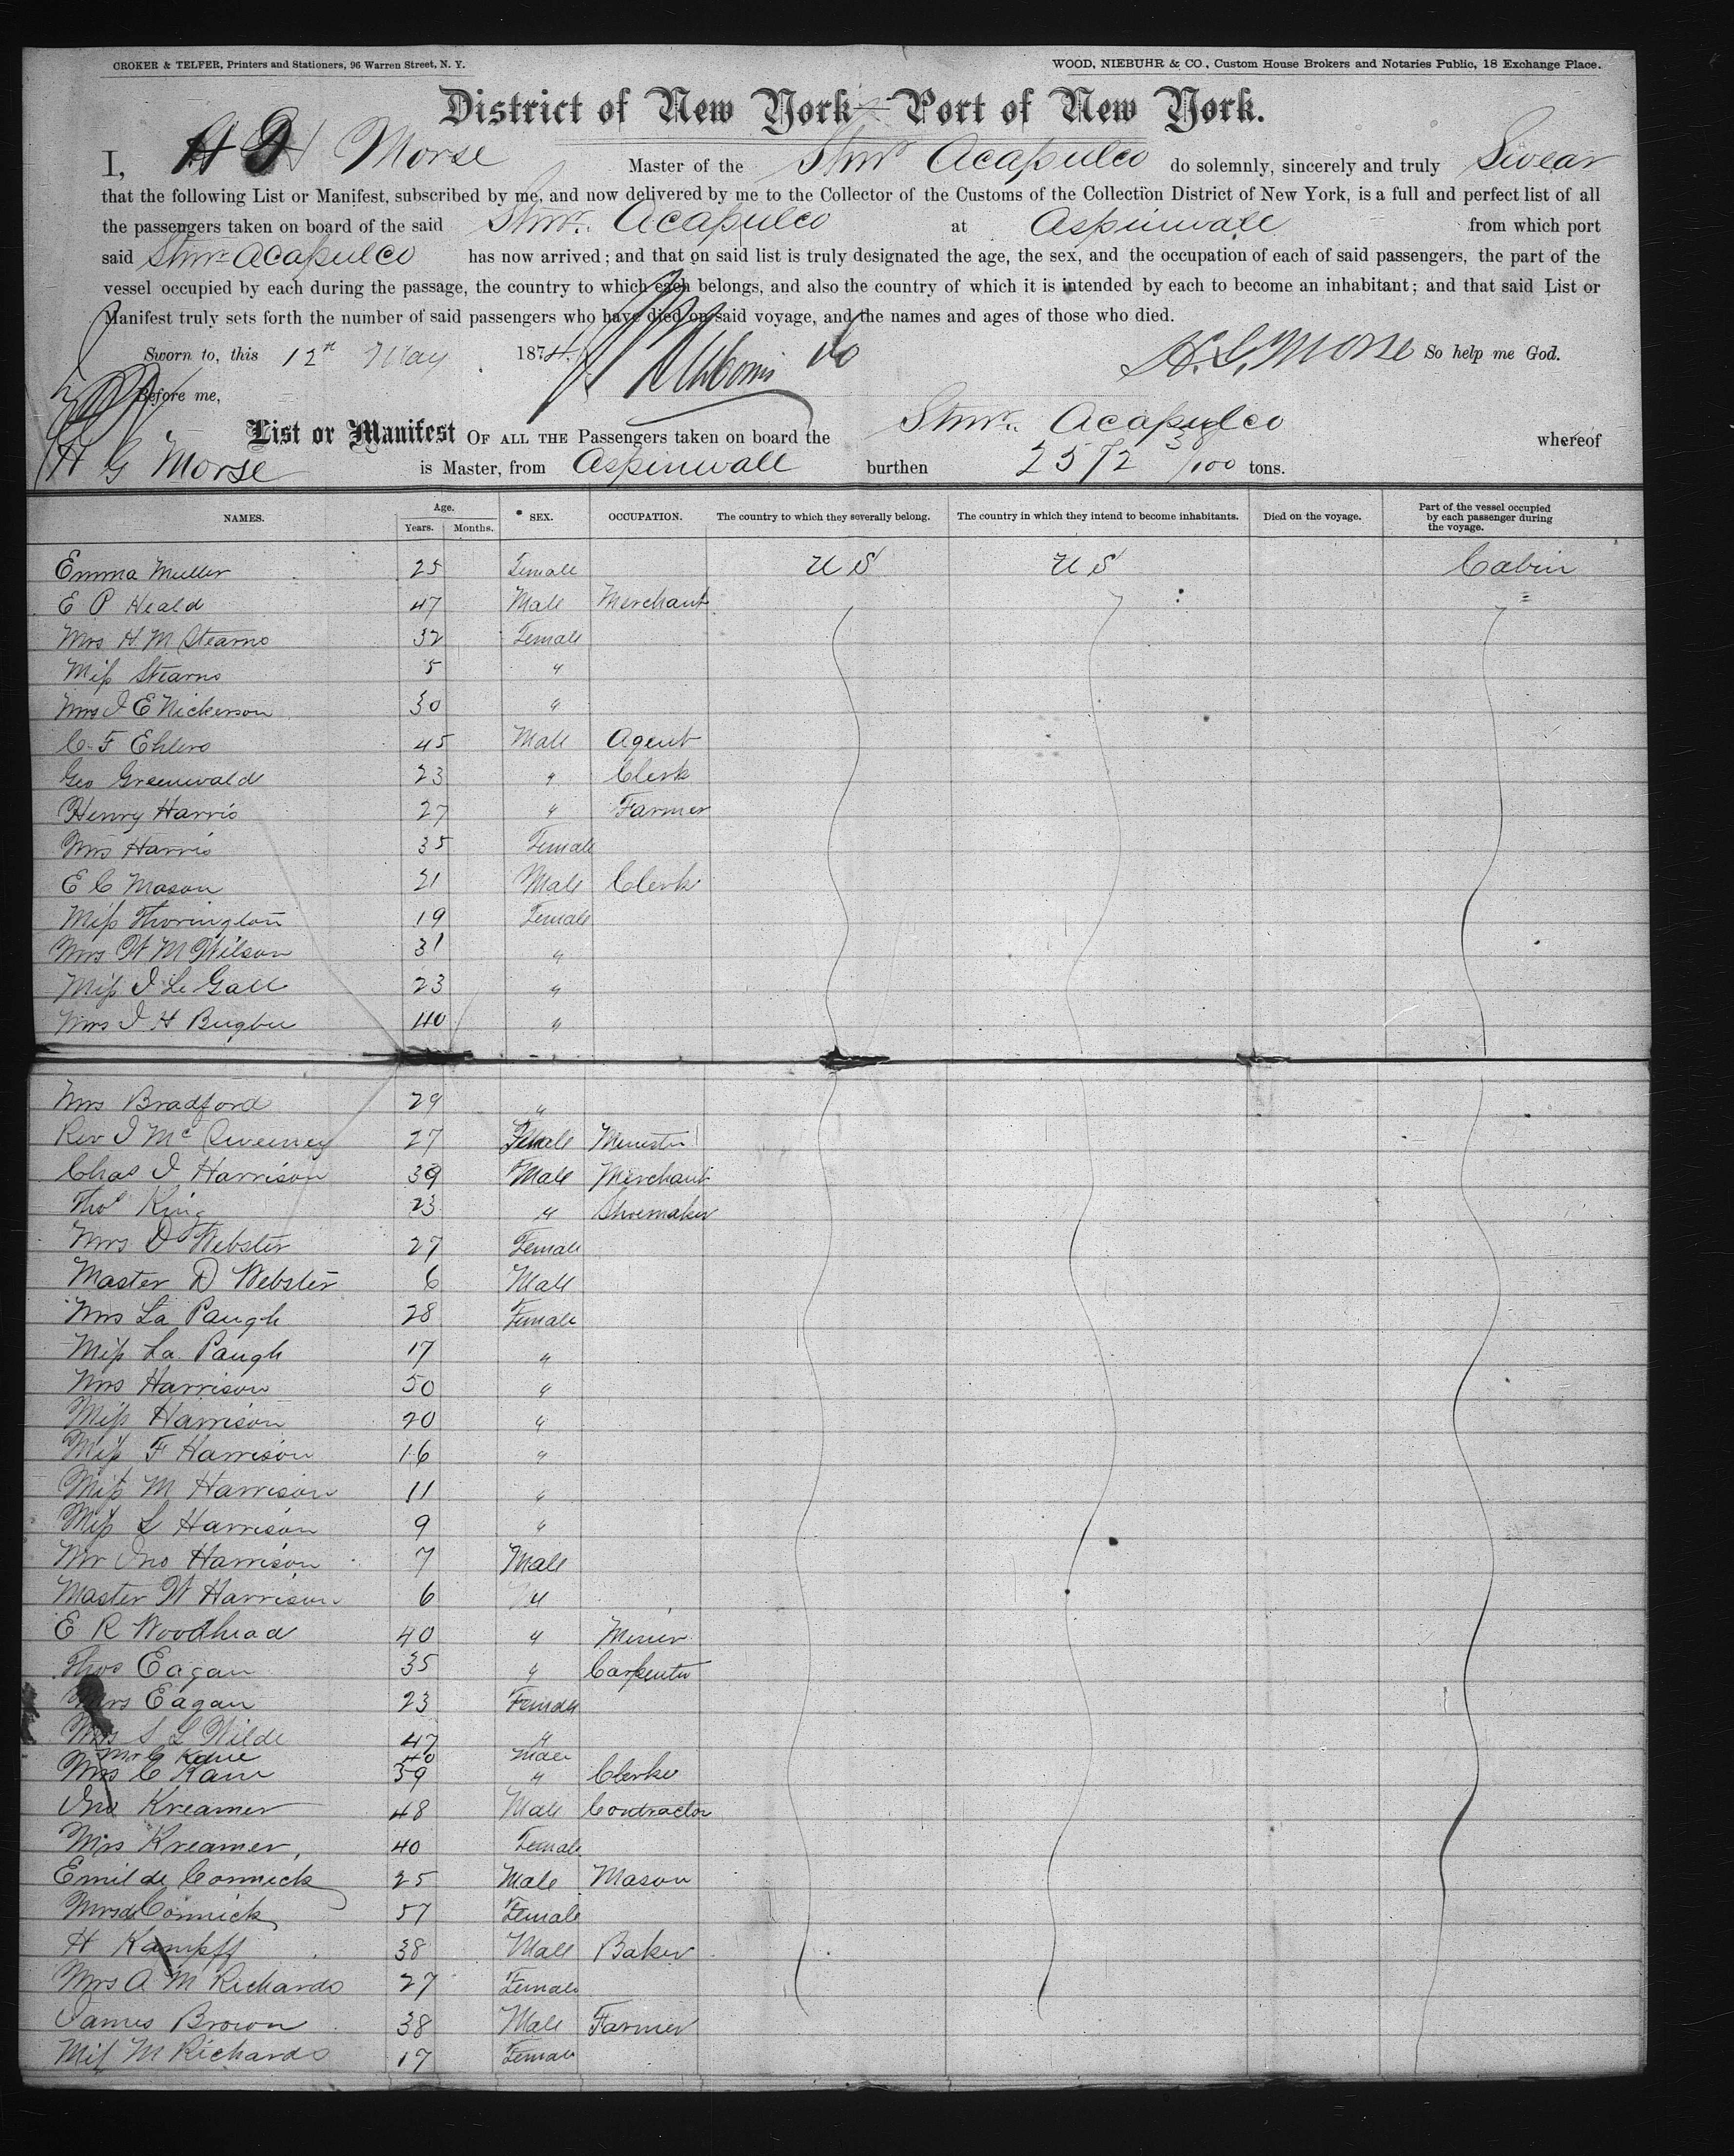 CROKER & TELFER, Printers and Stationers, 96 Warren Street, N. Y. WOOD, NIEBUHR & CO., Custom House Brokers and Notaries Public, 18 Exchange Place.
District of New York—Port of New York.
I, Morse Master of the Stmr Acapulco do solemnly, sincerely and truly Swear
that the following List or Manifest, subscribed by me, and now delivered by me to the Collector of the Customs of the Collection District of New York, is a full and perfect list of all
the passengers taken on board of the said Stmr. Acapulco at Aspinwall from which port
said Stmr Acapulco has now arrived; and that on said list is truly designated the age, the sex, and the occupation of each of said passengers, the part of the
vessel occupied by each during the passage, the country to which each belongs, and also the country of which it is intended by each to become an inhabitant; and that said List or
Manifest truly sets forth the number of said passengers who have died on said voyage, and the names and ages of those who died.
Sworn to, this 12th May 1874. H. G. Morse So help me God.
Before me,
List or Manifest OF ALL THE Passengers taken on board the Stmr. Acapulco whereof
H G Morse is Master, from Aspinwall burthen 2572 38/100 tons.
NAMES. Age. Years. Months. SEX. OCCUPATION. The country to which they severally belong. The country in which they intend to become inhabitants. Died on the voyage. Part of the vessel occupied by each passenger during the voyage.
Emma Muller 25 Female U S U S Cabin
E P Heald 47 Male Merchant "
Mrs H M Stearns 32 Female
Miss Stearns 5 "
Mrs J E Nickerson 30 "
C. F Ehlers 45 Male Agent
Geo Greenwald 23 " Clerk
Henry Harris 27 " Farmer
Mrs Harris 35 Female
E C Mason 21 Male Clerk
Miss Thorington 19 Female
Mrs W M Wilson 31 "
Miss J Le Gall 23 "
Mrs J H Bugbee 40 "
Mrs Bradford 29 "
Rev J Mc Sweeney 27 Minister
Chas J Harrison 39 Male Merchant
Thos King 23 " Shoemaker
Mrs D Webster 27 Female
Master D Webster 6 Male
Mrs La Paugh 28 Female
Miss La Paugh 17 "
Mrs Harrison 50 "
Miss Harrison 20 "
Miss F Harrison 16 "
Miss M Harrison 11 "
Miss L Harrison 9 "
Mr Jno Harrison 7 Male
Master W Harrison 6 "
E R Woodhead 40 " Miner
Thos Eagan 35 " Carpenter
Mrs Eagan 23 Female
Mrs S L Wilde 47 "
Mr C Kane 40 Male
Mrs C Kane 39 " Clerk
Jno Kreamer 48 Male Contractor
Mrs Kreamer, 40 Female
Emil de Connick 25 Male Mason
Mrs de Connick 57 Female
H Kampff 38 Male Baker
Mrs A M Richards 27 Female
James Brown 38 Male Farmer
Miss M Richards 17 Female